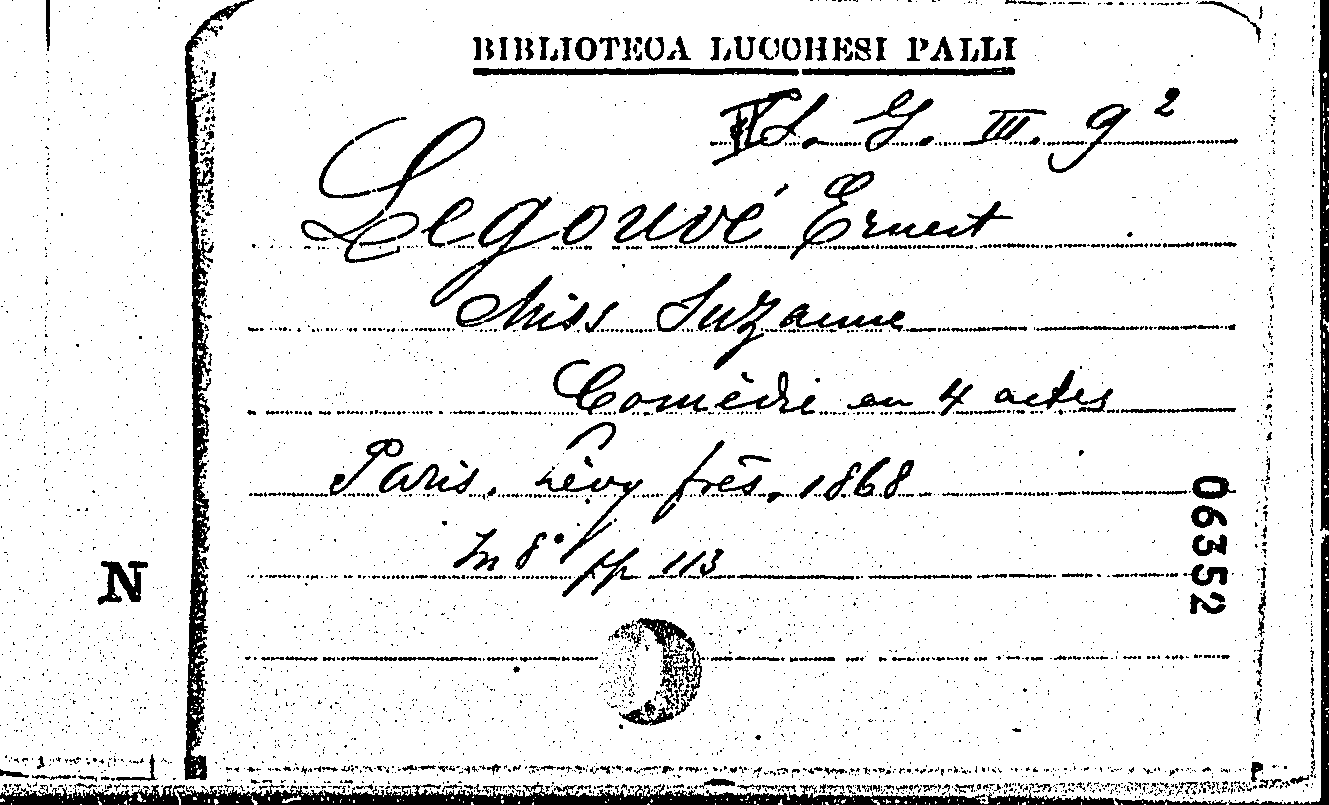 BIBLIOTECA LUCCHESI PALLI
L. G. III. g 2
Legouvé Ernest
Miss Suzanne
Comèdie en 4 actes
Paris, Lèvy frès, 1868
In 8° pp 113
06352
N